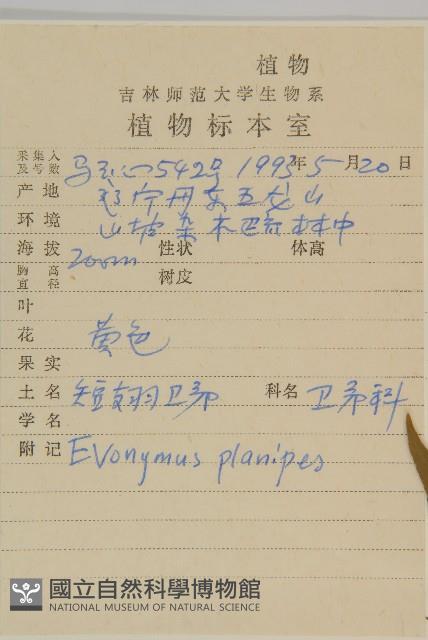 植物
吉林师范大学生物系
植物标本室
采集人及号数 马玉心 542号 1993年5月20日
产地 辽宁丹东五龙山
环境 山坡杂木 林中
海拔 200m 性状 体高
胸高直径 树皮
叶
花 黄色
果实
土名 短翅卫矛 科名 卫矛科
学名
附记 Evonymus planipes
國立自然科學博物館
NATIONAL MUSEUM OF NATURAL SCIENCE